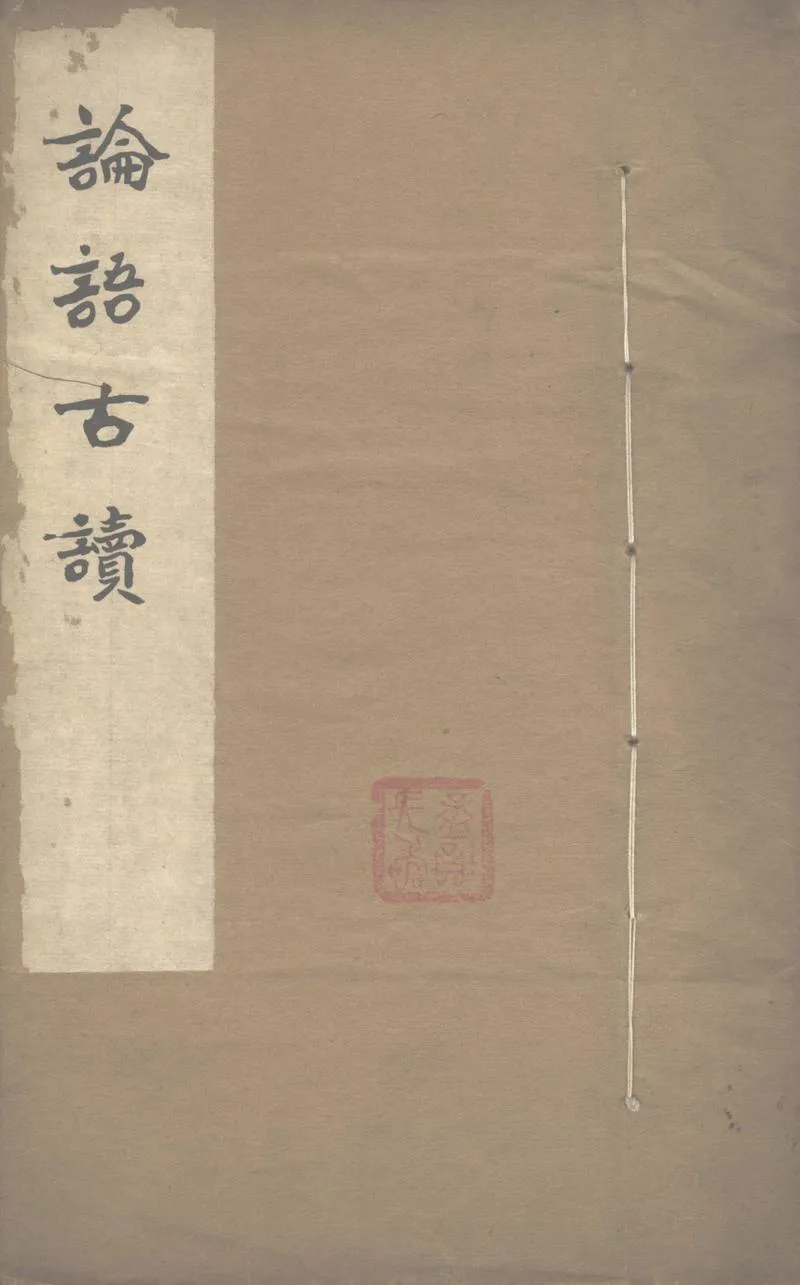 論語古讀